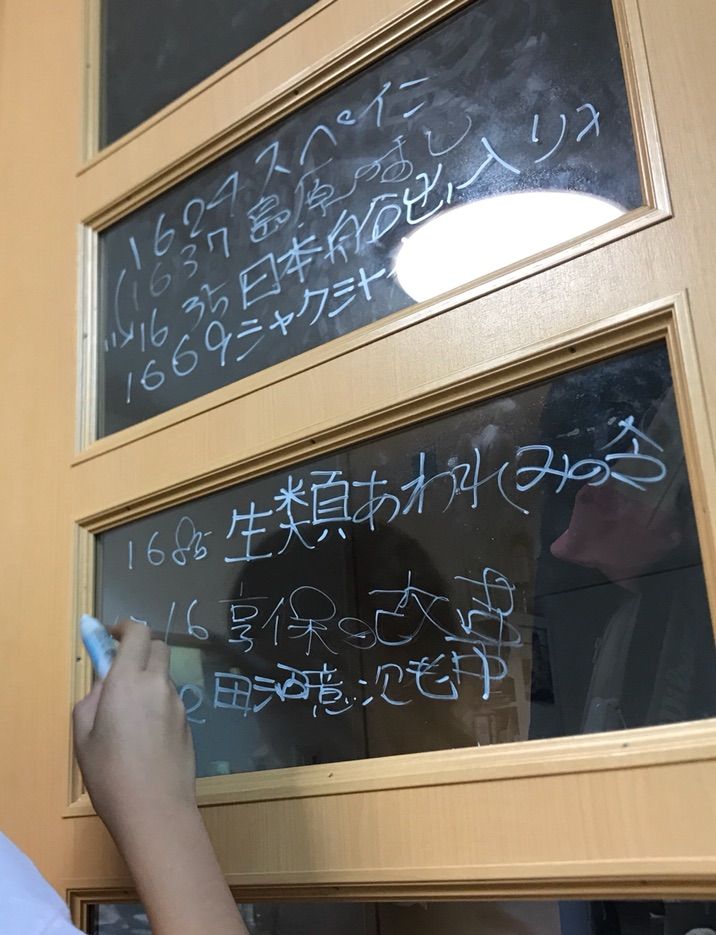 1624スペイン
(1637 島原のまし
1635日本船出入り
1669シャクシャ
1685 生類あわれみの令
16 享保の改革
2田沼意次老中